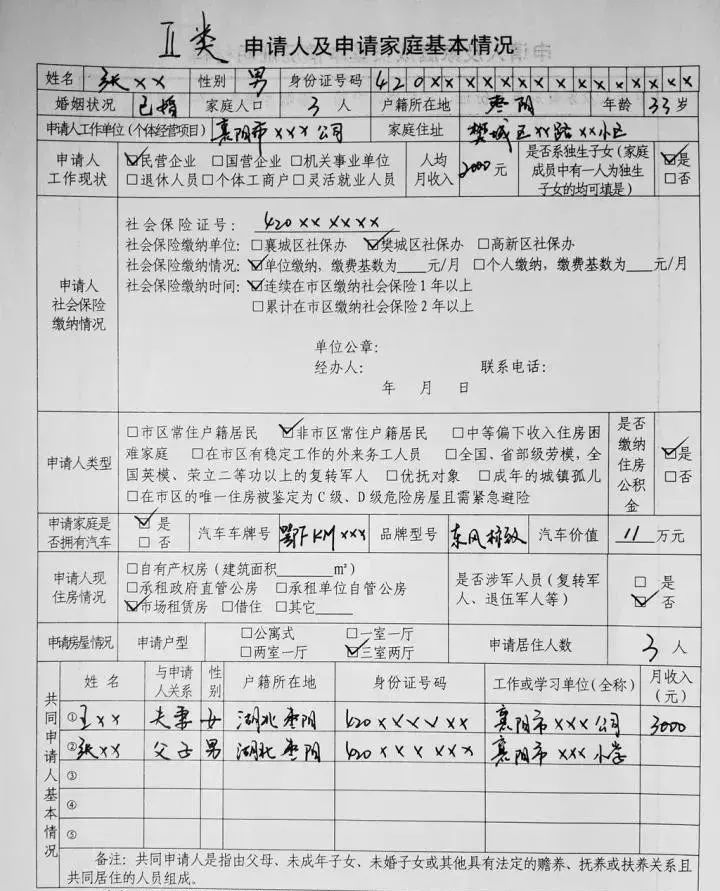 II类 申请人及申请家庭基本情况
姓名 张×× 性别 男 身份证号码 420×××××××××××××××
婚姻状况 已婚 家庭人口 3 人 户籍所在地 枣阳 年龄 33岁
申请人工作单位(个体经营项目) 襄阳市×××公司 家庭住址 樊城区××路××小区
申请人工作现状 ☑民营企业 □国营企业 □机关事业单位
□退休人员 □个体工商户 □灵活就业人员
人均月收入 2000元
是否系独生子女(家庭成员中有一人为独生子女的均可填是) ☑是 □否
申请人社会保险缴纳情况
社会保险证号: 420××××××
社会保险缴纳单位: □襄城区社保办 ☑樊城区社保办 □高新区社保办
社会保险缴纳情况: ☑单位缴纳，缴费基数为____元/月 □个人缴纳，缴费基数为____元/月
社会保险缴纳时间: ☑连续在市区缴纳社会保险1年以上
□累计在市区缴纳社会保险2年以上
单位公章:
经办人: 联系电话:
年 月 日
申请人类型
□市区常住户籍居民 ☑非市区常住户籍居民 □中等偏下收入住房困
难家庭 □在市区有稳定工作的外来务工人员 □全国、省部级劳模，全
国英模、荣立二等功以上的复转军人 □优抚对象 □成年的城镇孤儿
□在市区的唯一住房被鉴定为C级、D级危险房屋且需紧急避险
是否缴纳住房公积金 ☑是 □否
申请家庭是否拥有汽车 ☑是 □否 汽车车牌号 鄂FKM××× 品牌型号 东风标致 汽车价值 11 万元
申请人现住房情况
□自有产权房(建筑面积______m²)
□承租政府直管公房 □承租单位自管公房
☑市场租赁房 □借住 □其它____
是否涉军人员(复转军人、退伍军人等) □是 ☑否
申请房屋情况 申请户型 □公寓式 □一室一厅
□两室一厅 ☑三室两厅
申请居住人数 3 人
共同申请人基本情况
姓名 与申请人关系 性别 户籍所在地 身份证号码 工作或学习单位(全称) 月收入(元)
①王×× 夫妻 女 湖北枣阳 420×××××× 襄阳市×××公司 3000
②张×× 父子 男 湖北枣阳 420×××××× 襄阳市×××小学
③
④
⑤
备注：共同申请人是指由父母、未成年子女、未婚子女或其他具有法定的赡养、抚养或扶养关系且
共同居住的人员组成。